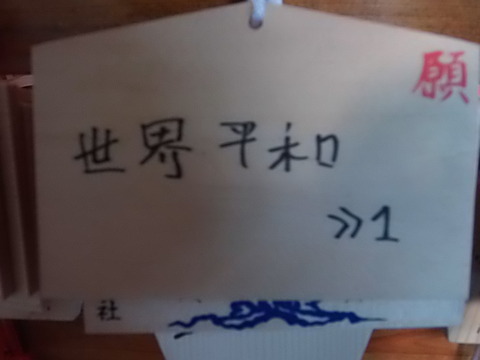 願
世界平和
≫1
社